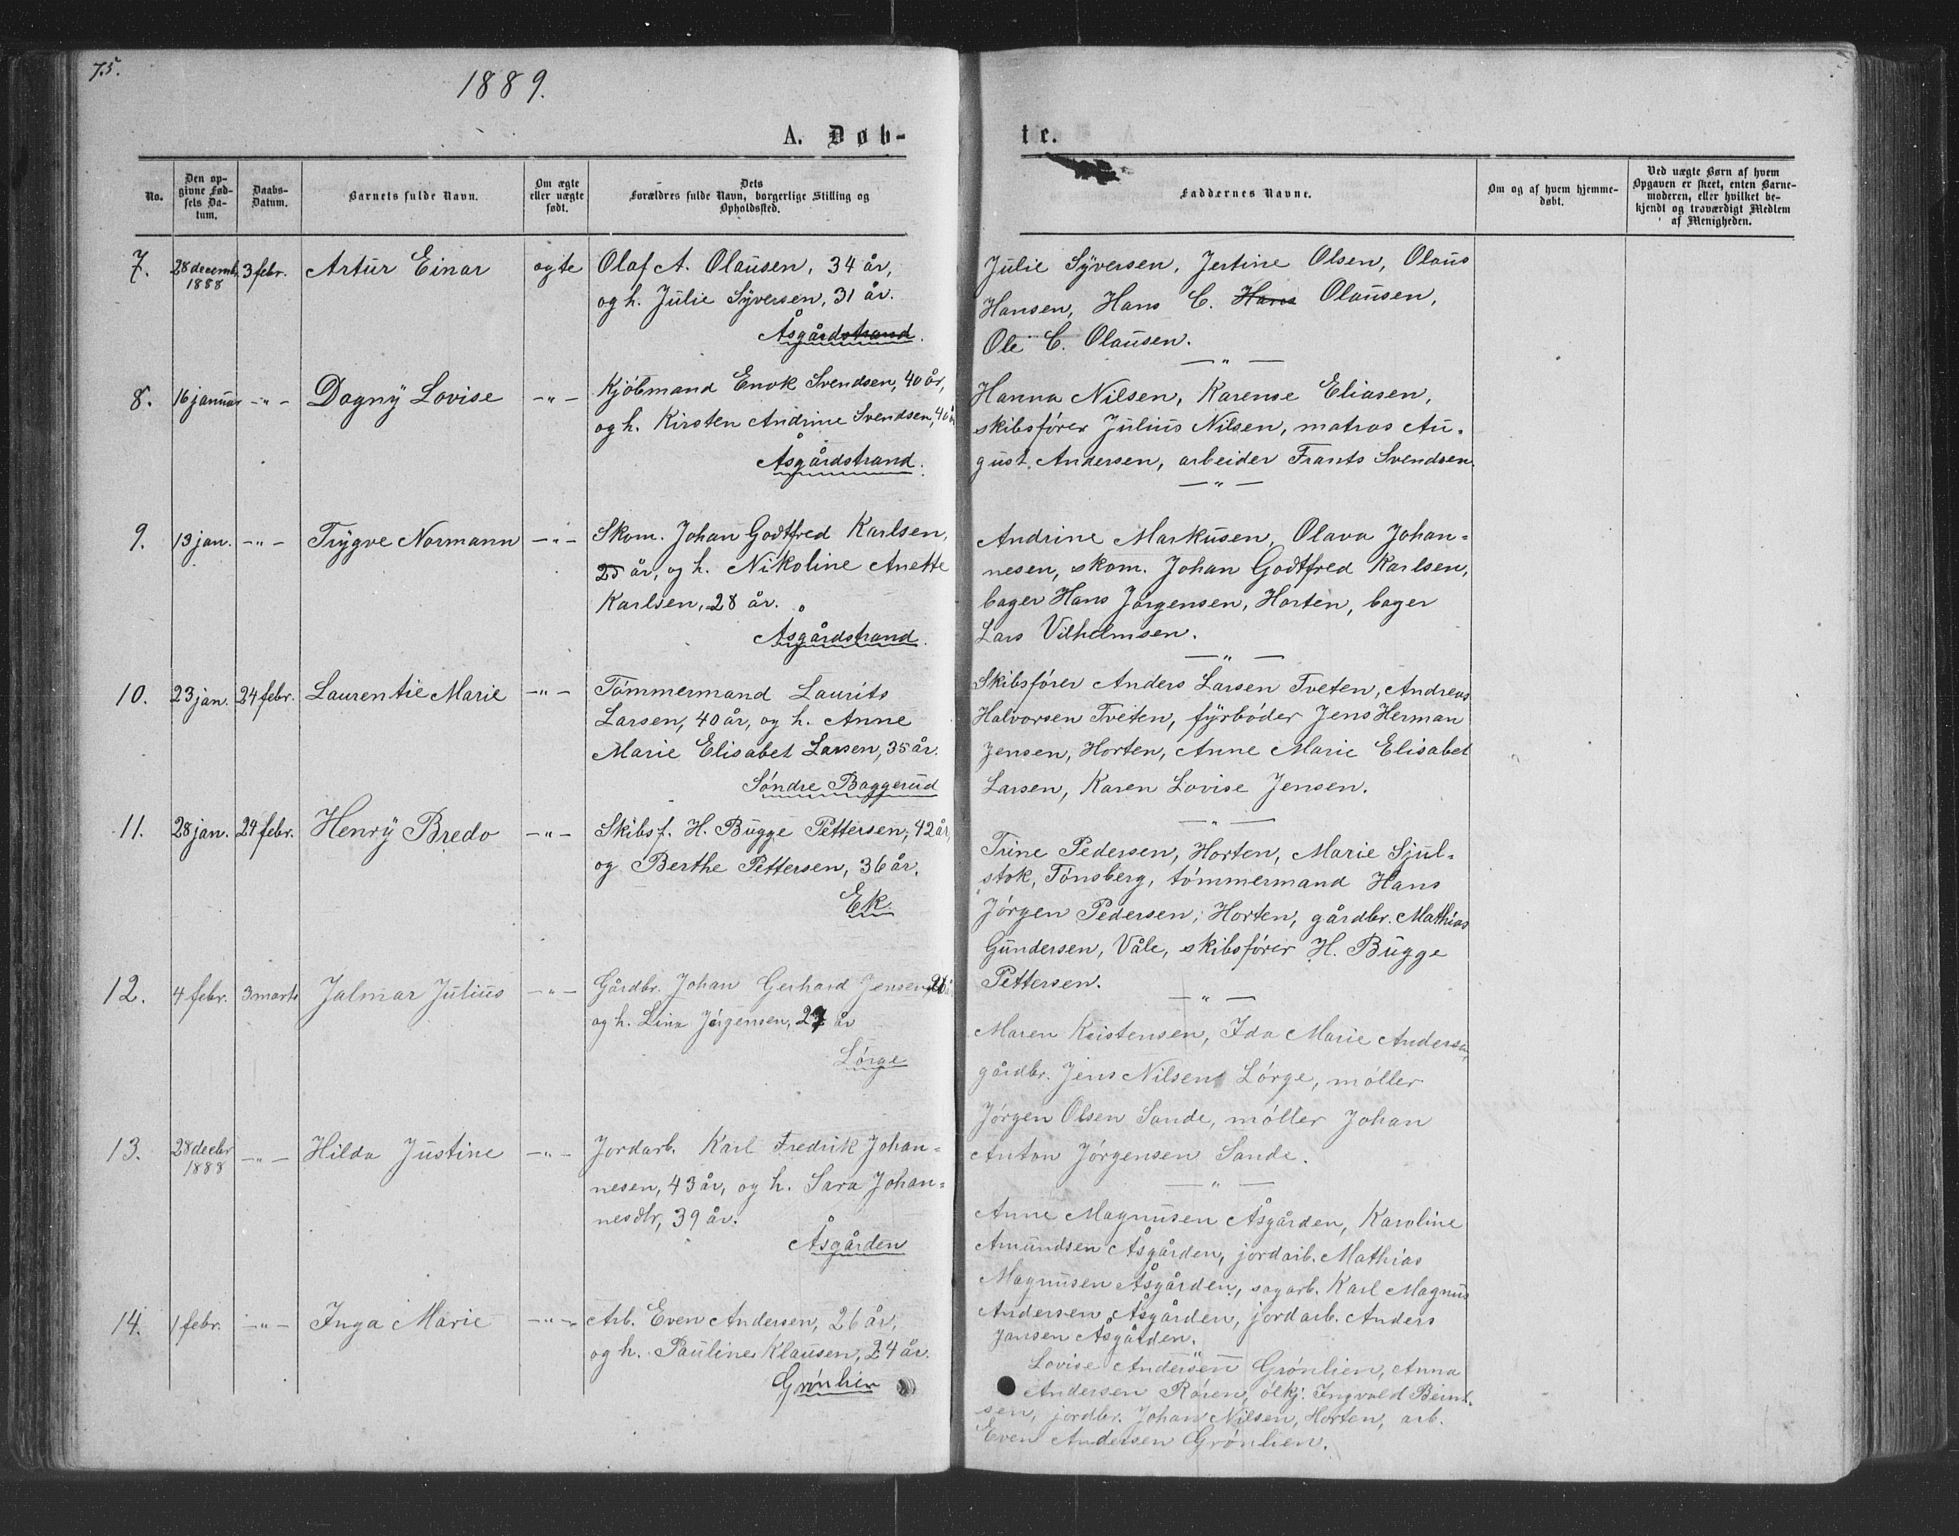 75.
1889.
A. Døb-
te.
No.
Den op-
givne Fød-
sels Da-
tum.
Daabs-
Datum.
Barnets fulde Navn.
Om ægte
eller uægte
født.
Dets
Forældres fulde Navn, borgerlige Stilling og
Opholdssted.
Faddernes Navne.
Om og af hvem hjemme-
døbt.
Ved uægte Børn af hvem
Opgaven er skeet, enten Barne-
moderen, eller hvilket be-
kjendt og troværdigt Medlem
af Menigheden.
7.
28 decemb.
1888
3 febr.
Artur Einar
ægte
Olaf A. Olausen, 34 år,
og h. Julie Syversen, 31 år.
Åsgårdstrand.
Julie Syversen, Jertine Olsen, Olaus
Hansen, Hans C. Hans Olausen,
Ole C. Olausen.
— " —
8.
16 januar
— " —
Dagny Lovise
— " —
Kjøbmand Enok Svendsen, 40 år,
og h. Kirsten Andrine Svendsen, 40 år
Åsgårdstrand.
Hanna Nilsen, Karense Eliasen,
skibsfører Julius Nilsen, matros Au-
gust Andersen, arbeider Frants Svendsen
— " —
9.
13 jan.
— " —
Trygve Normann
— " —
Skom. Johan Godtfred Karlsen,
25 år, og h. Nikoline Anette
Karlsen, 28 år.
Åsgårdstrand.
Andrine Markusen, Olava Johan-
nesen, skom. Johan Godtfred Karlsen,
bager Hans Jørgensen, Horten, bager
Lars Vilhelmsen.
— " —
10.
23 jan.
24 febr.
Laurentie Marie
— " —
Tømmermand Laurits
Larsen, 40 år, og h. Anne
Marie Elisabet Larsen, 35 år.
Søndre Baggerud
Skibsfører Anders Larsen Tveten, Andreas
Halvorsen Tveten, fyrbøder Jens Herman
Jensen, Horten, Anne Marie Elisabet
Larsen, Karen Lovise Jensen.
— " —
11.
28 jan.
24 febr.
Henry Bredo
— " —
Skibsf. H. Bugge Pettersen, 42 år,
og Berthe Pettersen, 36 år.
Ek.
Trine Pedersen, Horten, Marie Sjul-
stok, Tønsberg, tømmermand Hans
Jørgen Pedersen, Horten, gårdbr. Mathias
Gundersen, Våle, skibsfører H. Bugge
Pettersen.
— " —
12.
4 febr.
3 marts
Jalmar Julius
— " —
Gårdbr. Johan Gerhard Jensen,
og h. Lina Jørgensen, 27 år
Lørge
Maren Kristensen, Ida Marie Andersen,
gårdbr. Jens Nilsen Lørge, møller
Jørgen Olsen Sande, møller Johan
Anton Jørgensen Sande.
— " —
13.
28 decbr
1888
— " —
Hilda Justine
— " —
Jordarb. Karl Fredrik Johan-
nesen, 43 år, og h. Sara Johan-
nesdtr, 39 år.
Åsgården
Anne Magnusen Åsgården, Karoline
Amundsen Åsgården, jordarb. Mathias
Magnusen Åsgården, sagarb. Karl Magnus
Andersen Åsgården, jordarb. Anders
Jansen Åsgården.
— " —
14.
1 febr.
— " —
Inga Marie
— " —
Arb. Even Andersen, 26 år,
og h. Pauline Klausen, 24 år.
Grønlien
Lovise Andersen Grønlien, Anna
Andersen Røren, ølkj. Ingvald Bernt-
sen, jordbr. Johan Nilsen, Horten, arb.
Even Andersen Grønlien.